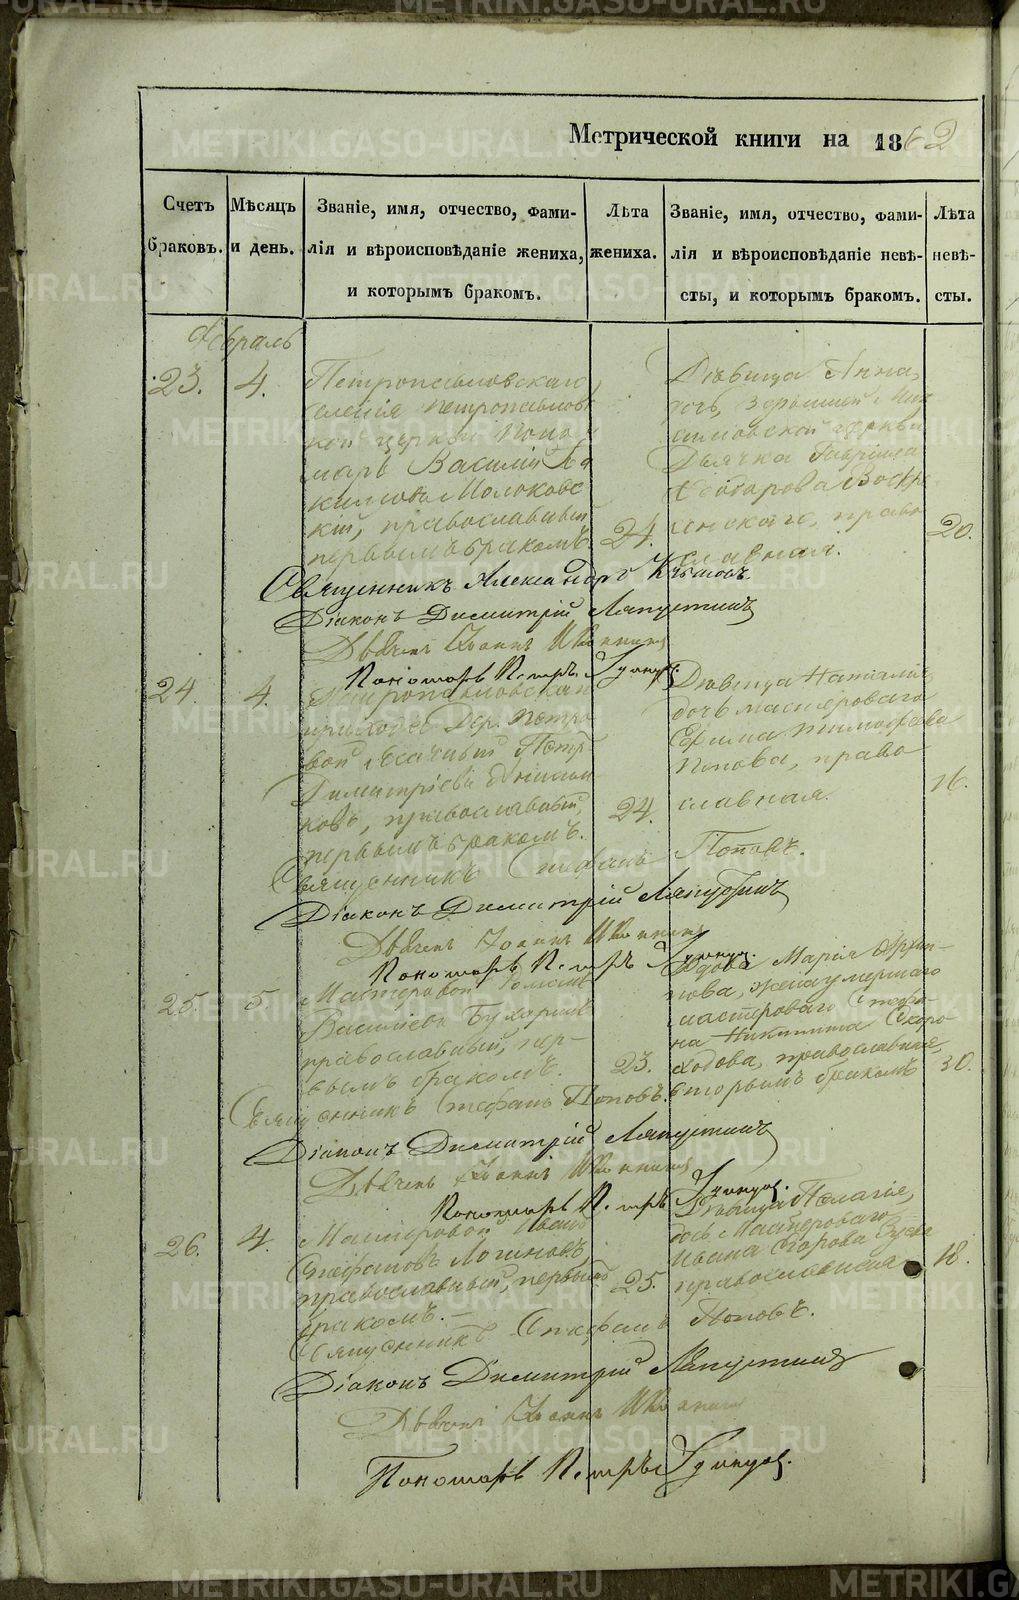 METRIKI.GASO-URAL.RU
Метрической книги на 1862
Счетъ браковъ.
Мѣсяцъ и день.
Званіе, имя, отчество, фами-
лія и вѣроисповѣданіе жениха,
и которымъ бракомъ.
Лѣта жениха.
Званіе, имя, отчество, фами-
лія и вѣроисповѣданіе невѣ-
сты, и которымъ бракомъ.
Лѣта невѣ-
сты.
Февраль
23.
4.
Петропавловскаго
селенія Петропавловс
кой церкви Поно
марь Василій
Молоковс
кій, православный
первымъ бракомъ.
24.
Дѣвица Анна,
дочь,
церкви
Дьячка Гавріила
Воскре
сенскаго, право
славная.
20.
Священникъ Александръ
Діаконъ Димитрій Ляпустинъ
Дьячекъ Іоаннъ
Пономарь Петръ Удинцов.
24.
4.
Петропавловскаго
прихода Дер. Петро
вой Петр
Димитріевъ
ковъ, православный,
первымъ бракомъ.
24.
Дѣвица Наталія
дочь мастероваго
Ефима Тимофеева
Попова, право
славная.
16.
Священникъ Стефанъ Поповъ.
Діаконъ Димитрій Ляпустинъ
Дьячекъ Іоаннъ
Пономарь Петръ Удинцов.
25.
5.
Мастеровой Романъ
Васильевъ Бухаринъ
православный, пер-
вымъ бракомъ.
23.
Вдова Марія Архип-
пова, жена умершаго
мастероваго Стефа-
на Никитина Скоро-
ходова, православная,
вторымъ бракомъ
30.
Священникъ Стефанъ Поповъ.
Діаконъ Димитрій Ляпустинъ
Дьячекъ Іоаннъ
Пономарь Петръ Удинцов.
26.
4.
Мастеровой Иванъ
Стефановъ Логиновъ,
православный, первымъ
бракомъ.
25.
Дѣвица Пелагія,
дочь Мастероваго
Ивана Егорова
православная
18.
Священникъ Стефанъ Поповъ.
Діаконъ Димитрій Ляпустинъ
Дьячекъ Іоаннъ
Пономарь Петръ Удинцов.